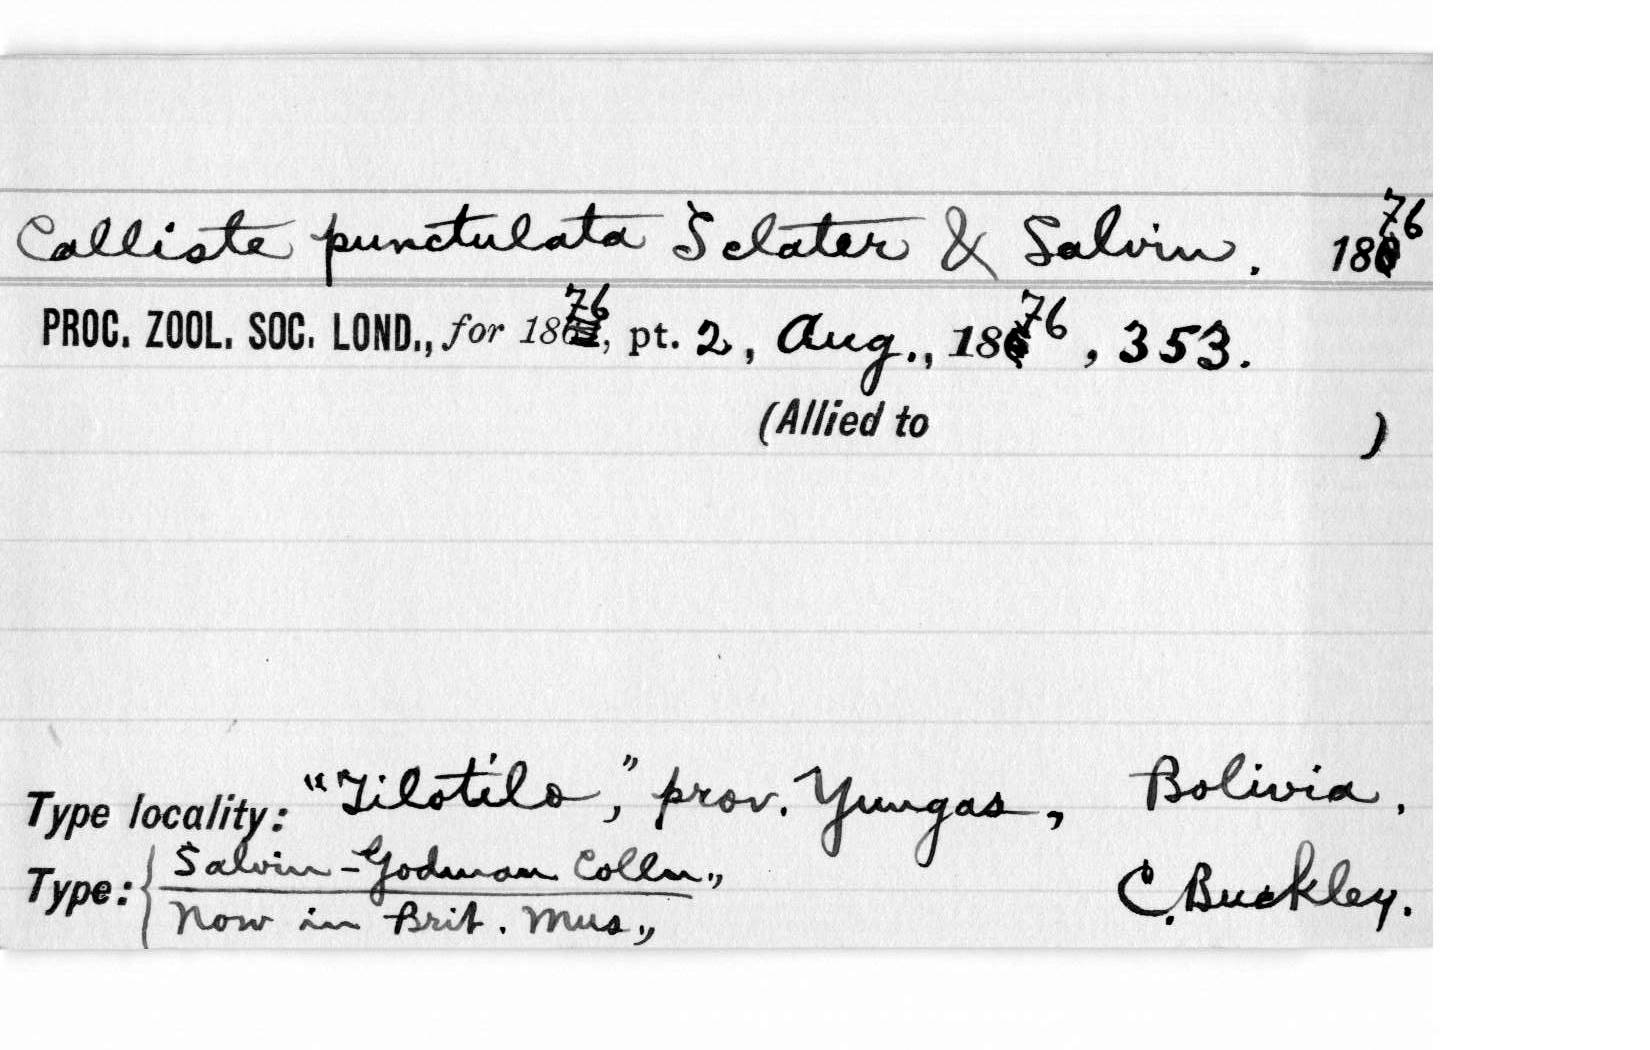 Calliste punctulata Sclater & Salvin. 1876
PROC. ZOOL. SOC. LOND., for 1876, pt. 2, Aug., 1876, 353.
(Allied to )
Type locality: "Tilotilo," prov. Yungas, Bolivia.
Type: { Salvin-Godman Colln., C. Buckley.
Now in Brit. Mus.,